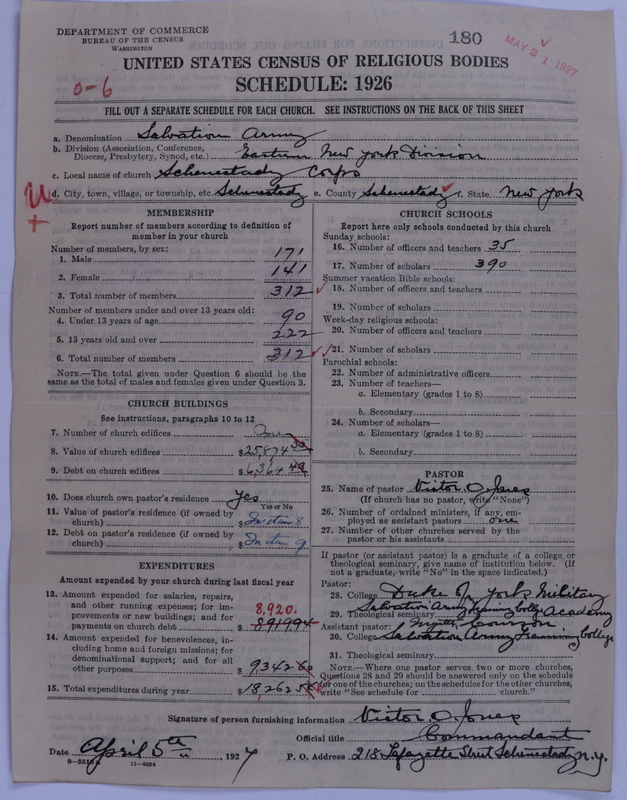 DEPARTMENT OF COMMERCE
BUREAU OF THE CENSUS
WASHINGTON
180
MAY 21 1927
UNITED STATES CENSUS OF RELIGIOUS BODIES
0-6
SCHEDULE: 1926
FILL OUT A SEPARATE SCHEDULE FOR EACH CHURCH. SEE INSTRUCTIONS ON THE BACK OF THIS SHEET
a. Denomination Salvation Army
b. Division (Association, Conference,
Diocese, Presbytery, Synod, etc.) Eastern New York Division
c. Local name of church Schenectady Corps
U d. City, town, village, or township, etc. Schenectady e. County Schenectady f. State New York
MEMBERSHIP
Report number of members according to definition of
member in your church
Number of members, by sex:
1. Male 171
2. Female 141
3. Total number of members 312
Number of members under and over 13 years old:
4. Under 13 years of age 90
5. 13 years old and over 222
6. Total number of members 312
NOTE.—The total given under Question 6 should be
the same as the total of males and females given under Question 3.
CHURCH BUILDINGS
See instructions, paragraphs 10 to 12
7. Number of church edifices One
8. Value of church edifices $25,874
9. Debt on church edifices $6,364
10. Does church own pastor's residence Yes
Yes or No
11. Value of pastor's residence (if owned by
church) $ In item 8
12. Debt on pastor's residence (if owned by
church) $ In item 9
EXPENDITURES
Amount expended by your church during last fiscal year
13. Amount expended for salaries, repairs,
and other running expenses; for im-
provements or new buildings; and for 8,920.
payments on church debt $ 891994
14. Amount expended for benevolences, in-
cluding home and foreign missions; for
denominational support; and for all
other purposes $ 9342
15. Total expenditures during year $ 18,262
CHURCH SCHOOLS
Report here only schools conducted by this church
Sunday schools:
16. Number of officers and teachers 35
17. Number of scholars 390
Summer vacation Bible schools:
18. Number of officers and teachers
19. Number of scholars
Week-day religious schools:
20. Number of officers and teachers
21. Number of scholars
Parochial schools:
22. Number of administrative officers
23. Number of teachers—
a. Elementary (grades 1 to 8)
b. Secondary
24. Number of scholars—
a. Elementary (grades 1 to 8)
b. Secondary
PASTOR
25. Name of pastor Victor O. Jones
(If church has no pastor, write "None")
26. Number of ordained ministers, if any, em-
ployed as assistant pastors one
27. Number of other churches served by the
pastor or his assistants
If pastor (or assistant pastor) is a graduate of a college or
theological seminary, give name of institution below. (If
not a graduate, write "No" in the space indicated.)
Pastor:
28. College Duke of York Military
Academy
29. Theological seminary Salvation Army Training College
Assistant pastor:
30. College Salvation Army Training College
31. Theological seminary
NOTE.—Where one pastor serves two or more churches,
Questions 28 and 29 should be answered only on the schedule
for one of the churches; on the schedules for the other churches,
write "See schedule for church."
Signature of person furnishing information Victor O Jones
Official title Commandant
Date April 5th 1927
P. O. Address 218 Lafayette Street Schenectady N.Y.
11-9064